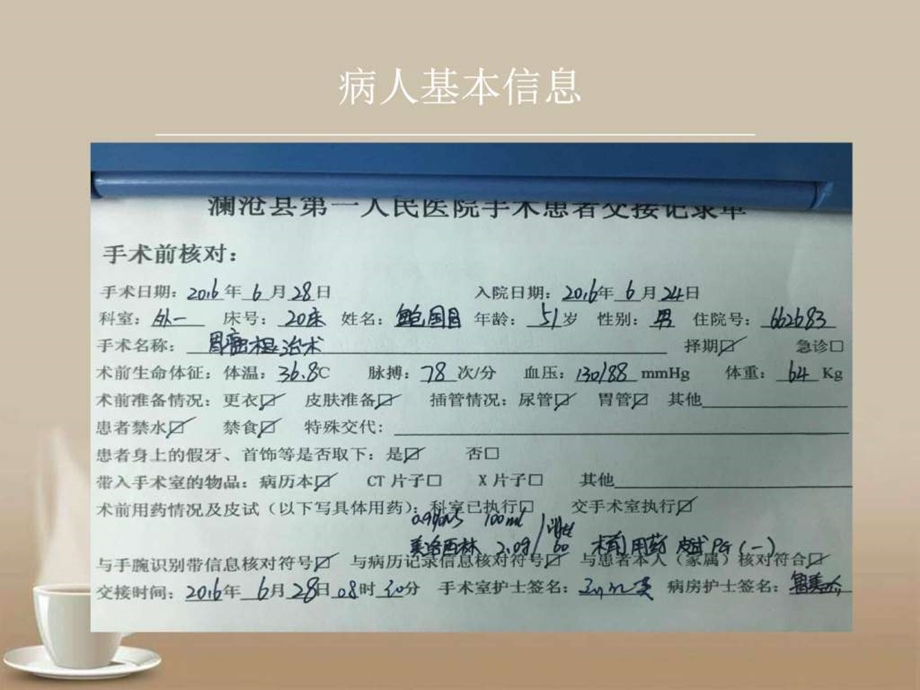 病人基本信息
澜沧县第一人民医院手术患者交接记录单
手术前核对：
手术日期：2016年6月28日 入院日期：2016年6月24日
科室：外一 床号：20床 姓名：鲍国 年龄：51岁 性别：男 住院号：662683
手术名称：胃癌根治术 择期☑ 急诊□
术前生命体征：体温：36.8℃ 脉搏：78次/分 血压：130/88 mmHg 体重：64 Kg
术前准备情况：更衣☑ 皮肤准备☑ 插管情况：尿管☑ 胃管☑ 其他
患者禁水☑ 禁食☑ 特殊交代：
患者身上的假牙、首饰等是否取下：是☑ 否□
带入手术室的物品：病历本☑ CT 片子□ X 片子□ 其他
术前用药情况及皮试（以下写具体用药）：科室已执行□ 交手术室执行☑
0.9%NS 100ml
美洛西林 2.0g 术前用药 皮试PG(一)
与手腕识别带信息核对符号☑ 与病历记录信息核对符号☑ 与患者本人（家属）核对符合☑
交接时间：2016年6月28日08时30分 手术室护士签名： 病房护士签名：